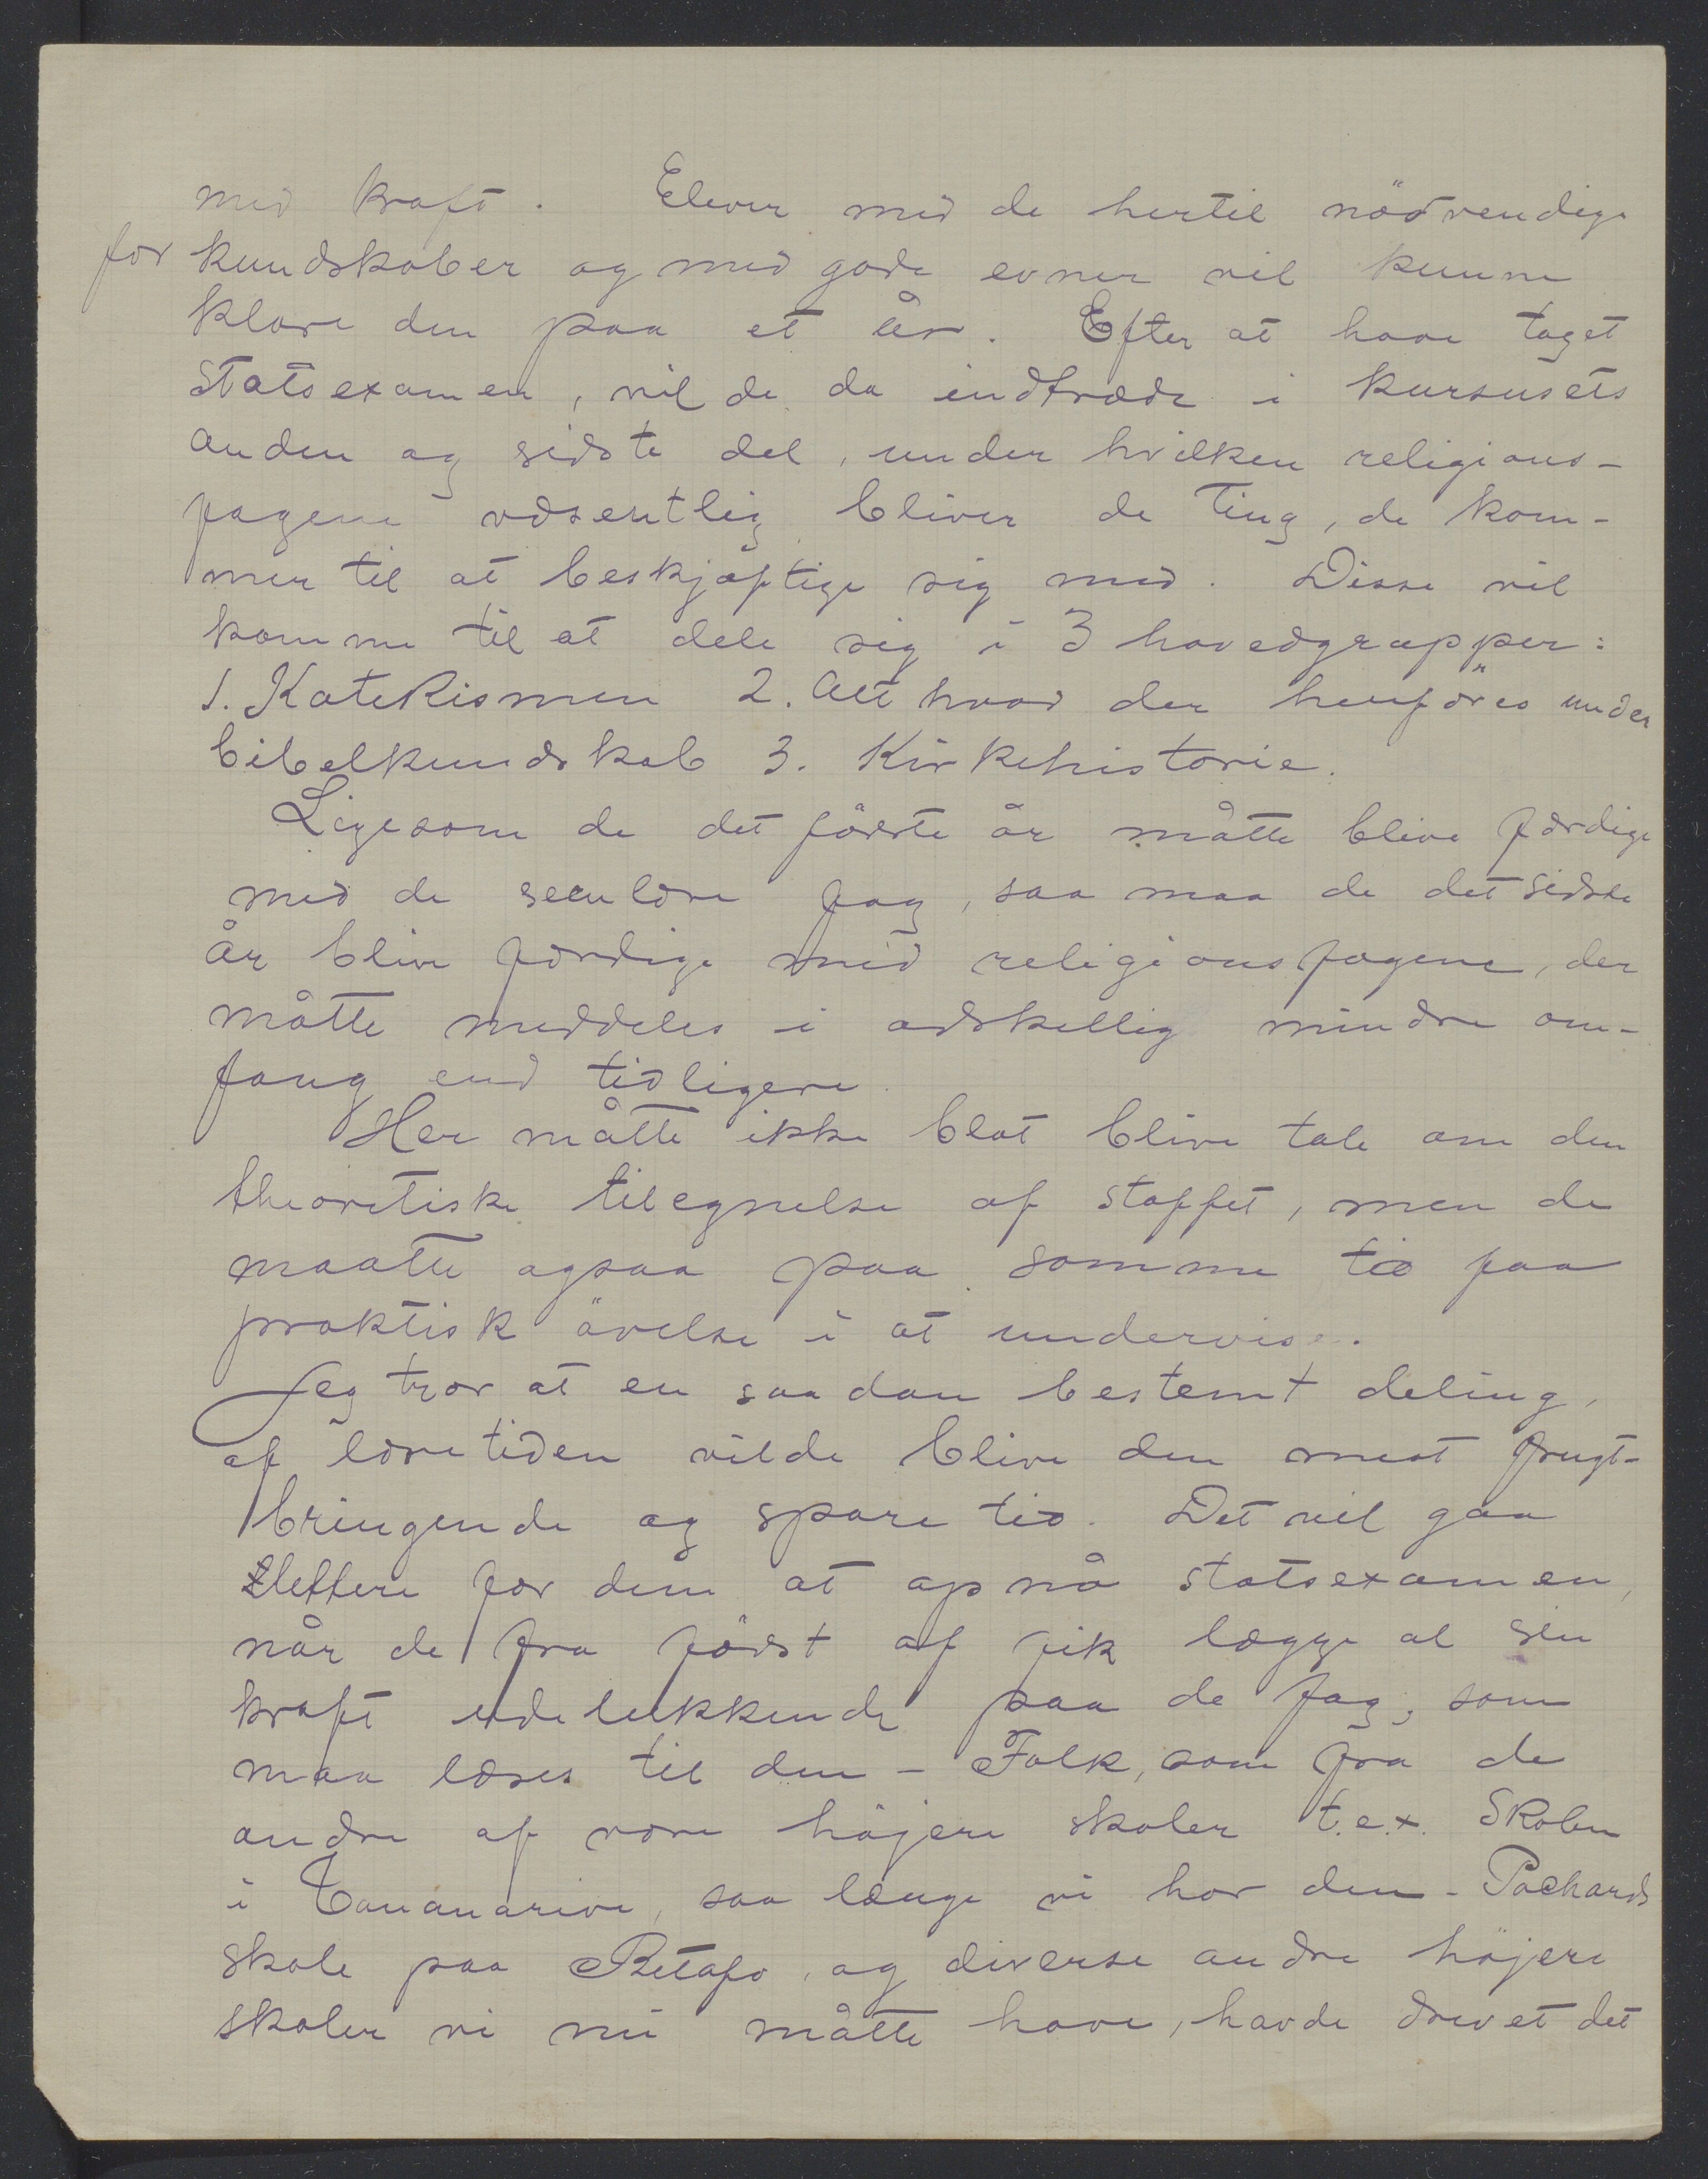 med kraft. Elever med de hertil nödvendige
for kundskaber og med gode evner vil kunne
klare den paa et år. Efter at have taget
Statsexamen, vil de da indtræde i kursusets
anden og sidste del, under hvilken religions-
fagene væsentlig bliver de Ting, de kom-
mer til at beskjæftige sig med. Disse vil
komme til at dele sig i 3 hovedgrupper:
1. Katekismen 2. Alt hvad der henføres under
bibelkundskab 3. Kirkehistorie.
Ligesom de det förste år måtte blive færdige
med de seculære fag, saa maa de det sidste
år blive færdige med religionsfagene, der
måtte meddeles i adskillig mindre om-
fang end tidligere.
Her måtte ikke blot blive tale om den
theoretiske tilegnelse af stoffet, men de
maatte ogsaa paa samme tid faa
praktisk övelse i at undervise.
Jeg tror at en saadan bestemt deling,
af læretiden vilde blive den mest frugt-
bringende og spare tid. Det vil gaa
lettere for dem at opnå statsexamen,
når de fra först af fik lægge al sin
kraft udelukkende paa de fag, som
maa læses til den - Folk, som fra de
andre af vore höjere skoler t.ex. Skolen
i Tananarive, saa længe vi har den - Pochards
skole paa Betafo, og diverse andre höjere
skoler vi nu måtte have, havde drevet det